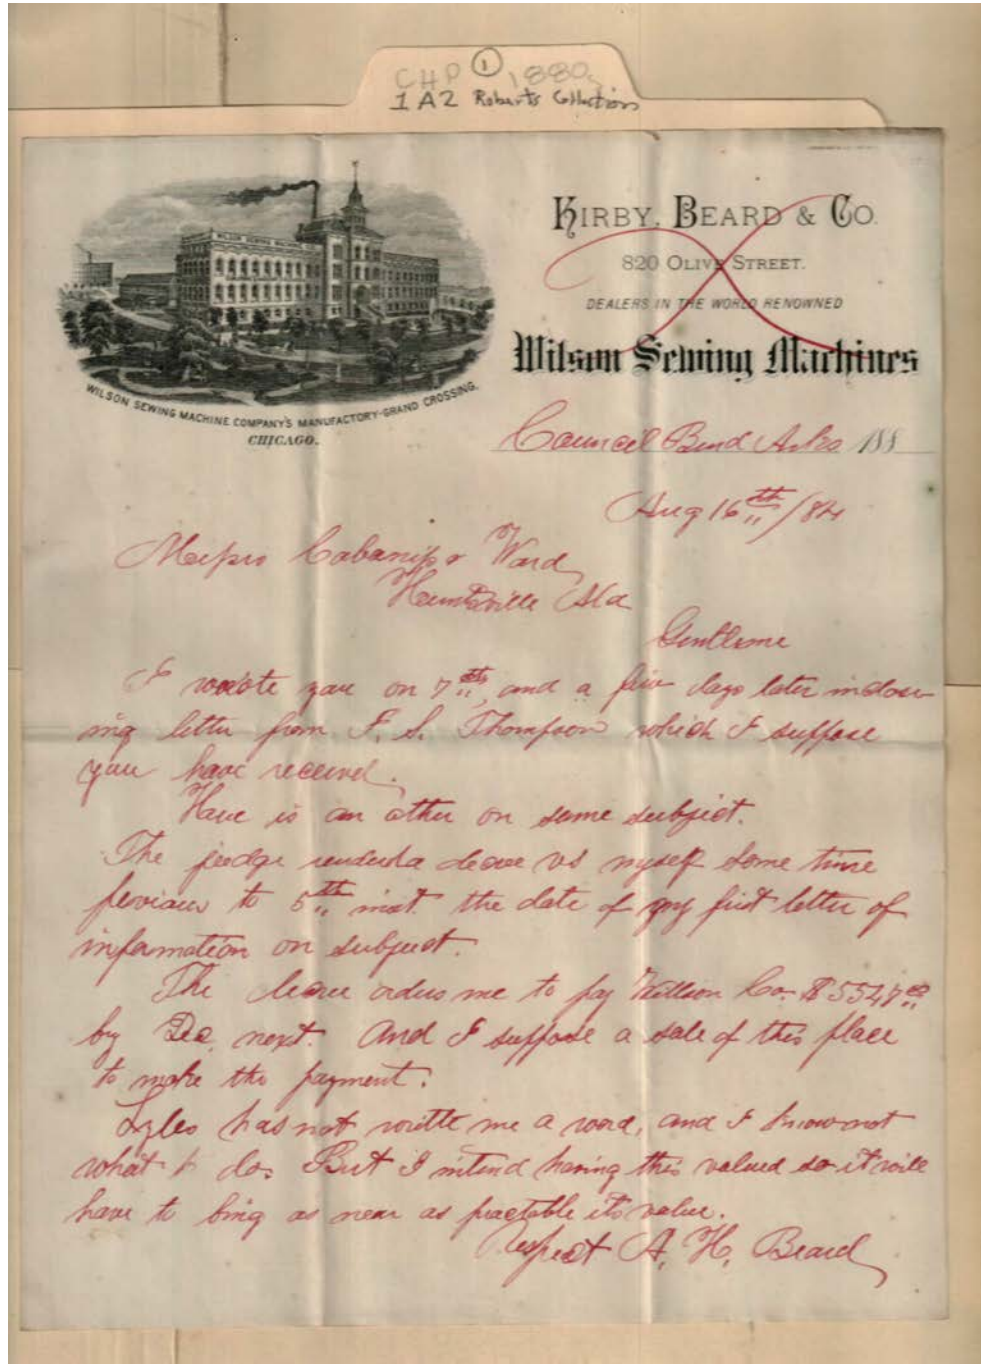 CHP ① 1880s
1A2 Roberts Collection
WILSON SEWING MACHINE
KIRBY, BEARD & CO.
820 OLIVE STREET.
DEALERS IN THE WORLD RENOWNED
Wilson Sewing Machines
WILSON SEWING MACHINE COMPANY'S MANUFACTORY-GRAND CROSSING.
CHICAGO.
Council Bend Arks 188
Aug 16th /84
Messrs Cabaniss & Ward
Huntsville Ala
Gentleme
I wrote you on 7th, and a few days later inclos-
ing letter from F. S. Thompson which I suppose
you have received.
Here is an other on same subject.
The judge rendered a decree vs myself some time
previous to 5th inst. the date of my first letter of
information on subject.
The decree orders me to pay Willson Co. $5547 00
by Dec, next. And I suppose a sale of this place
to make the payment.
Lyles has not writte me a word, and I know not
what to do. But I intend having this valued so it will
have to bring as near as practable its value.
Respect A. H. Beard